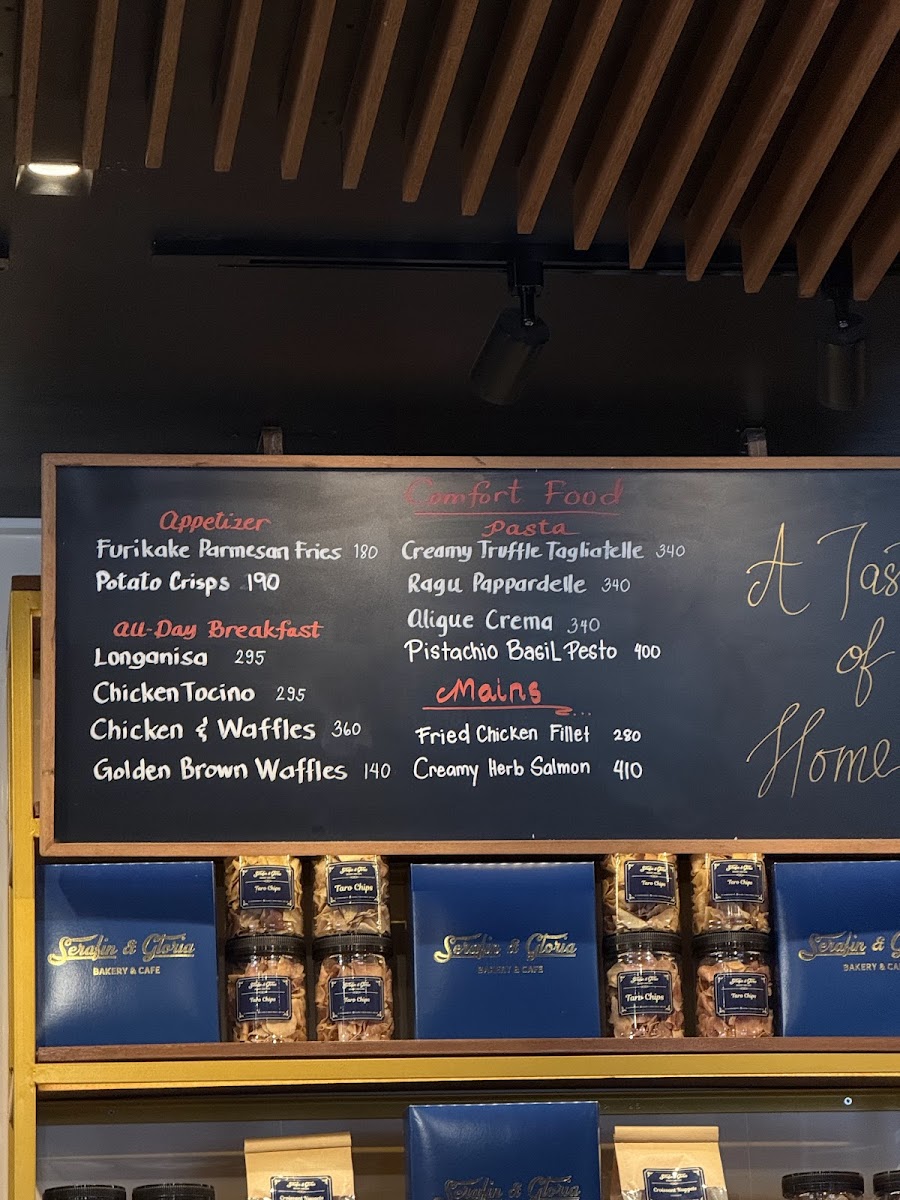 Comfort Food
Appetizer
Furikake Parmesan Fries 180
Potato Crisps 190
All-Day Breakfast
Longanisa 295
Chicken Tocino 295
Chicken & Waffles 360
Golden Brown Waffles 140
Pasta
Creamy Truffle Tagliatelle 340
Ragu Pappardelle 340
Aligue Crema 340
Pistachio Basil Pesto 400
Mains
Fried Chicken Fillet 280
Creamy Herb Salmon 410
A Tas
of
Home
Serafin & Gloria
BAKERY & CAFE
Taro Chips
Taro Chips
Serafin & Gloria
BAKERY & CAFE
Taro Chips
Taro Chips
Serafin & G
BAKERY & CA
Taro Chips
Taro Chips
Taro Chips
Taro Chips
Serafin & Gloria